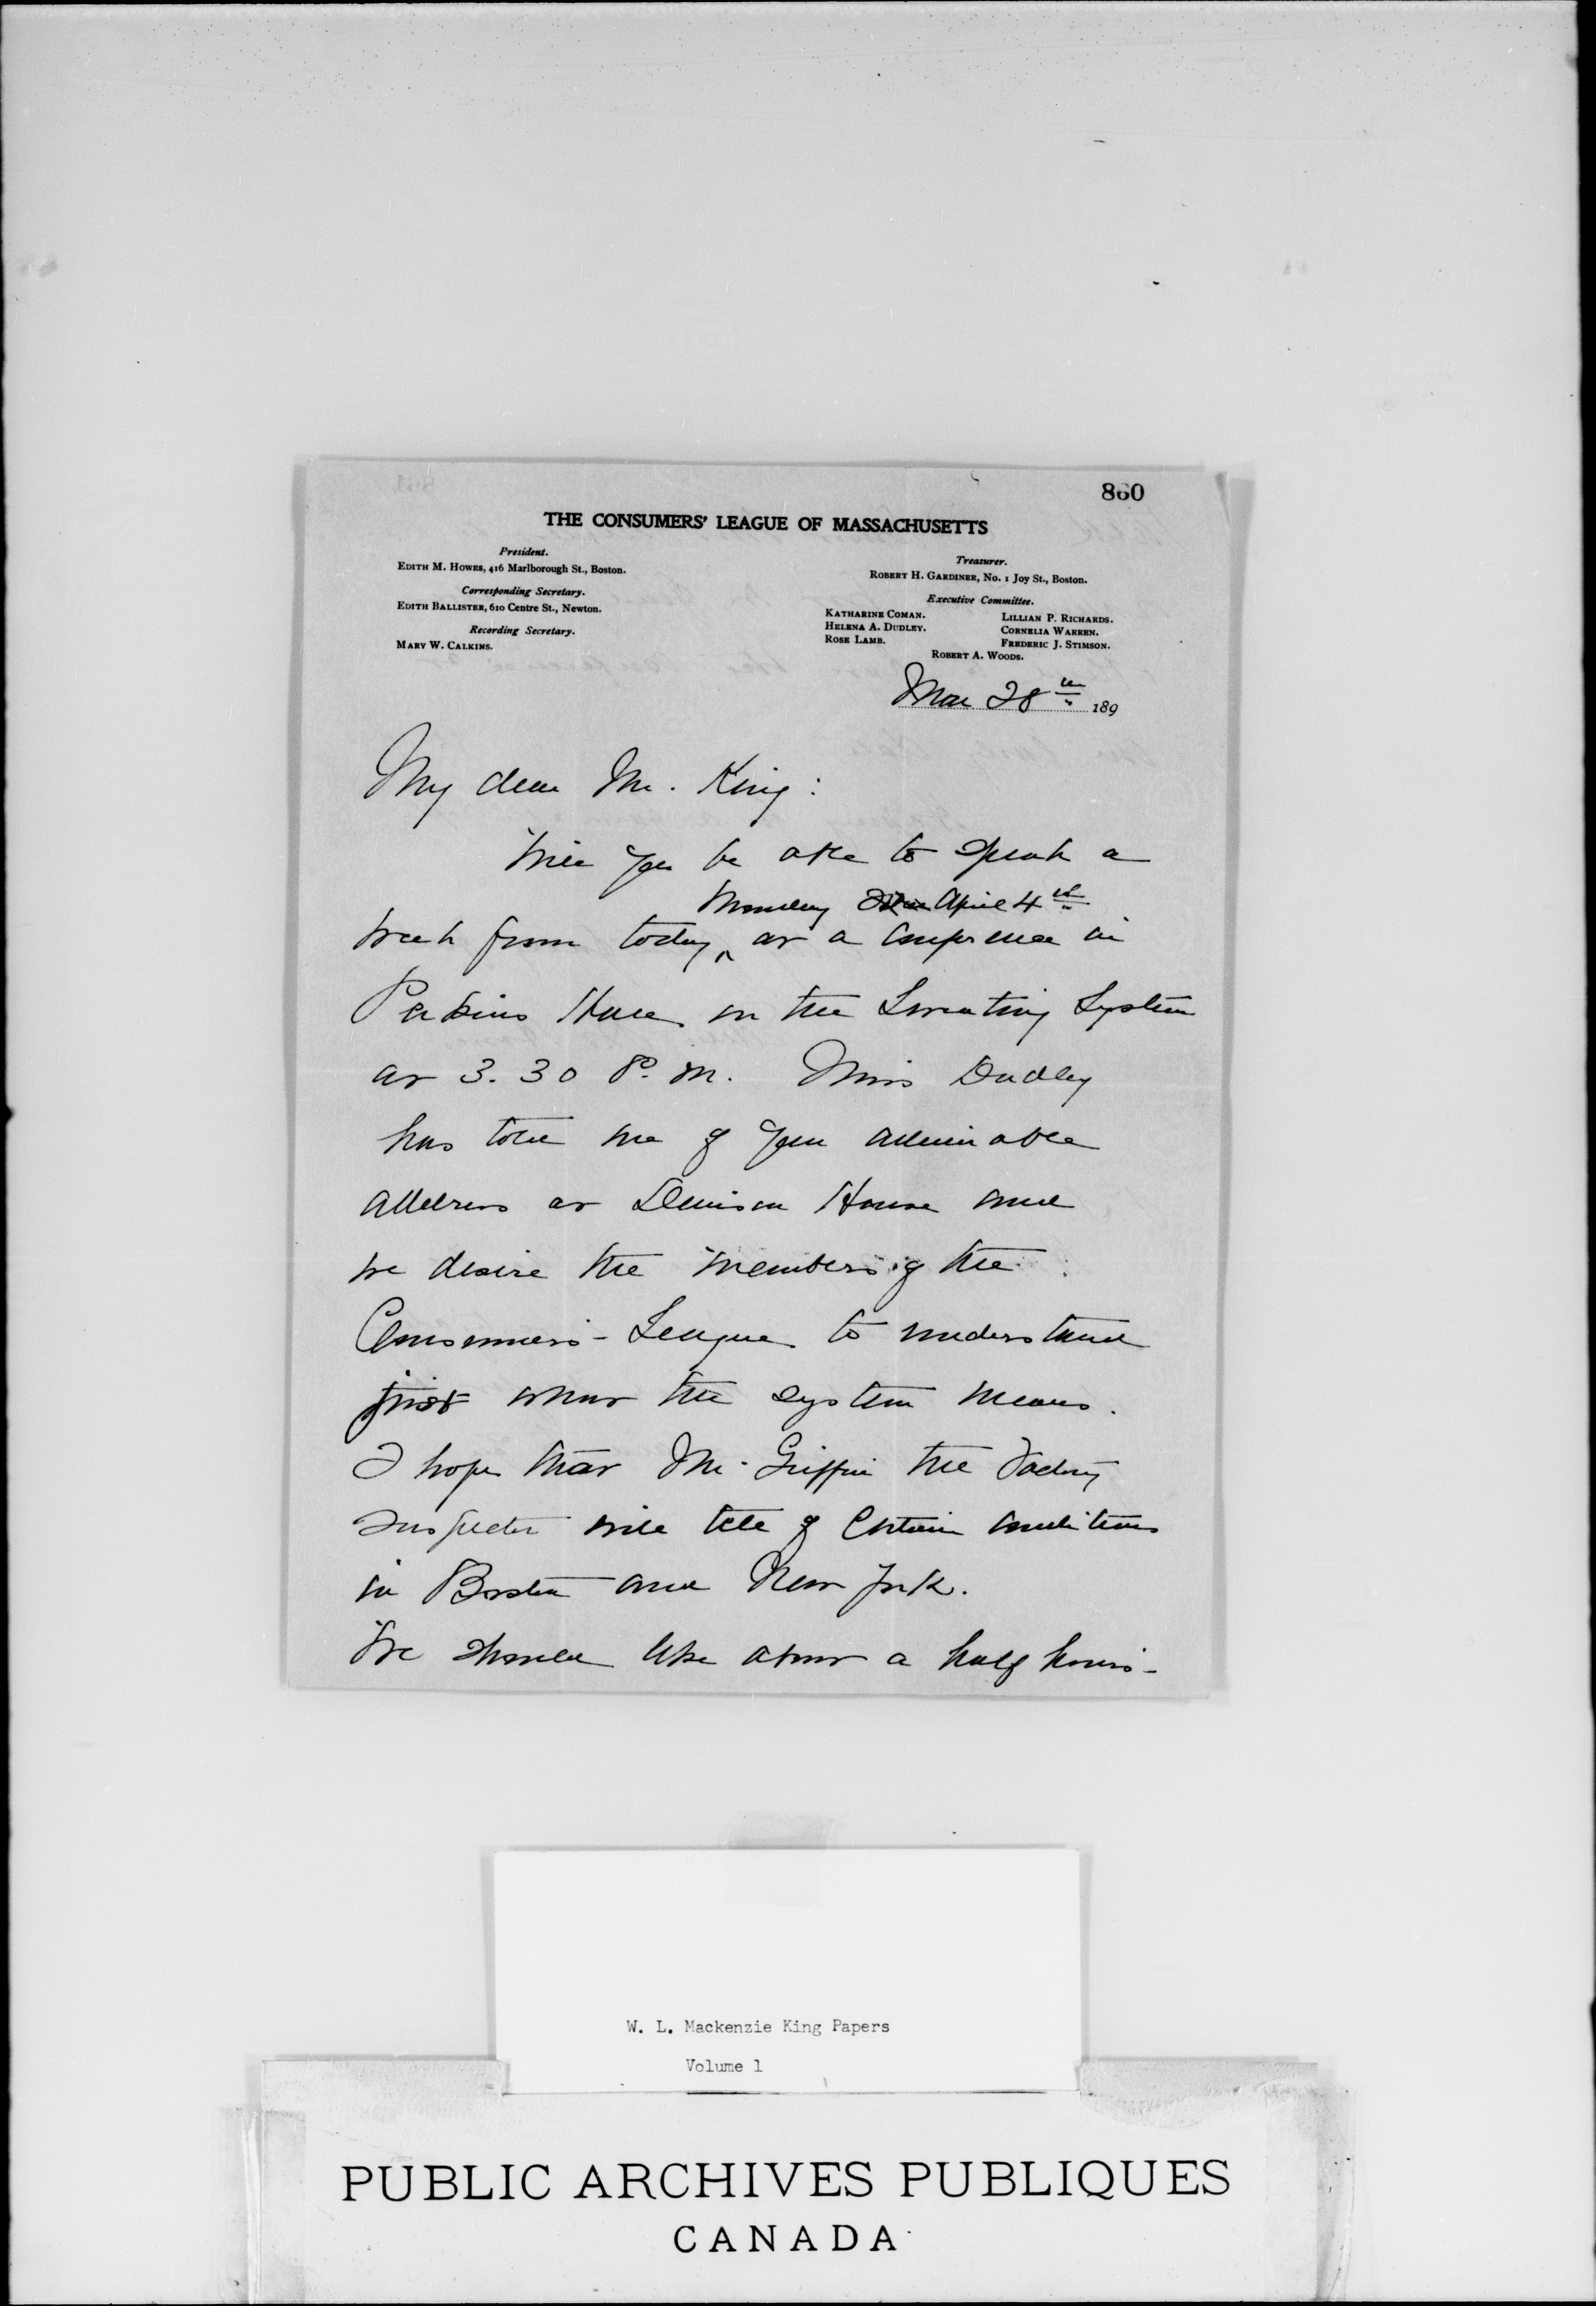 860
THE CONSUMERS' LEAGUE OF MASSACHUSETTS
President.
EDITH M. HOWES, 416 Marlborough St., Boston.
Corresponding Secretary.
EDITH BALLISTER, 610 Centre St., Newton.
Recording Secretary.
MARY W. CALKINS.
Treasurer.
ROBERT H. GARDINER, No. 1 Joy St., Boston.
Executive Committee.
KATHARINE COMAN. LILLIAN P. RICHARDS.
HELENA A. DUDLEY. CORNELIA WARREN.
ROSE LAMB. FREDERIC J. STIMSON.
ROBERT A. WOODS.
Mar 28th 189
My dear Mr. King:
Will you be able to speak a
Monday April 4th
week from today, at a conference in
Perkins Hall on the Sweating System
at 3.30 P.M. Miss Dudley
has told me of your admirable
address at Denison House and
we desire the members of the
Consumers- League to understand
just what the system means.
I hope that Mr. Griffin the Factory
Inspector will tell of certain conditions
in Boston and New York.
We should like about a half hour's-
W. L. Mackenzie King Papers
Volume 1
PUBLIC ARCHIVES PUBLIQUES
CANADA